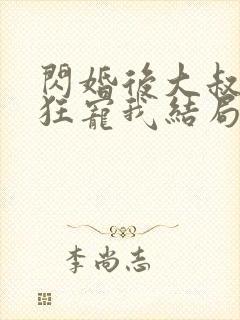 閃婚後大叔
狂寵我結局
李尚志